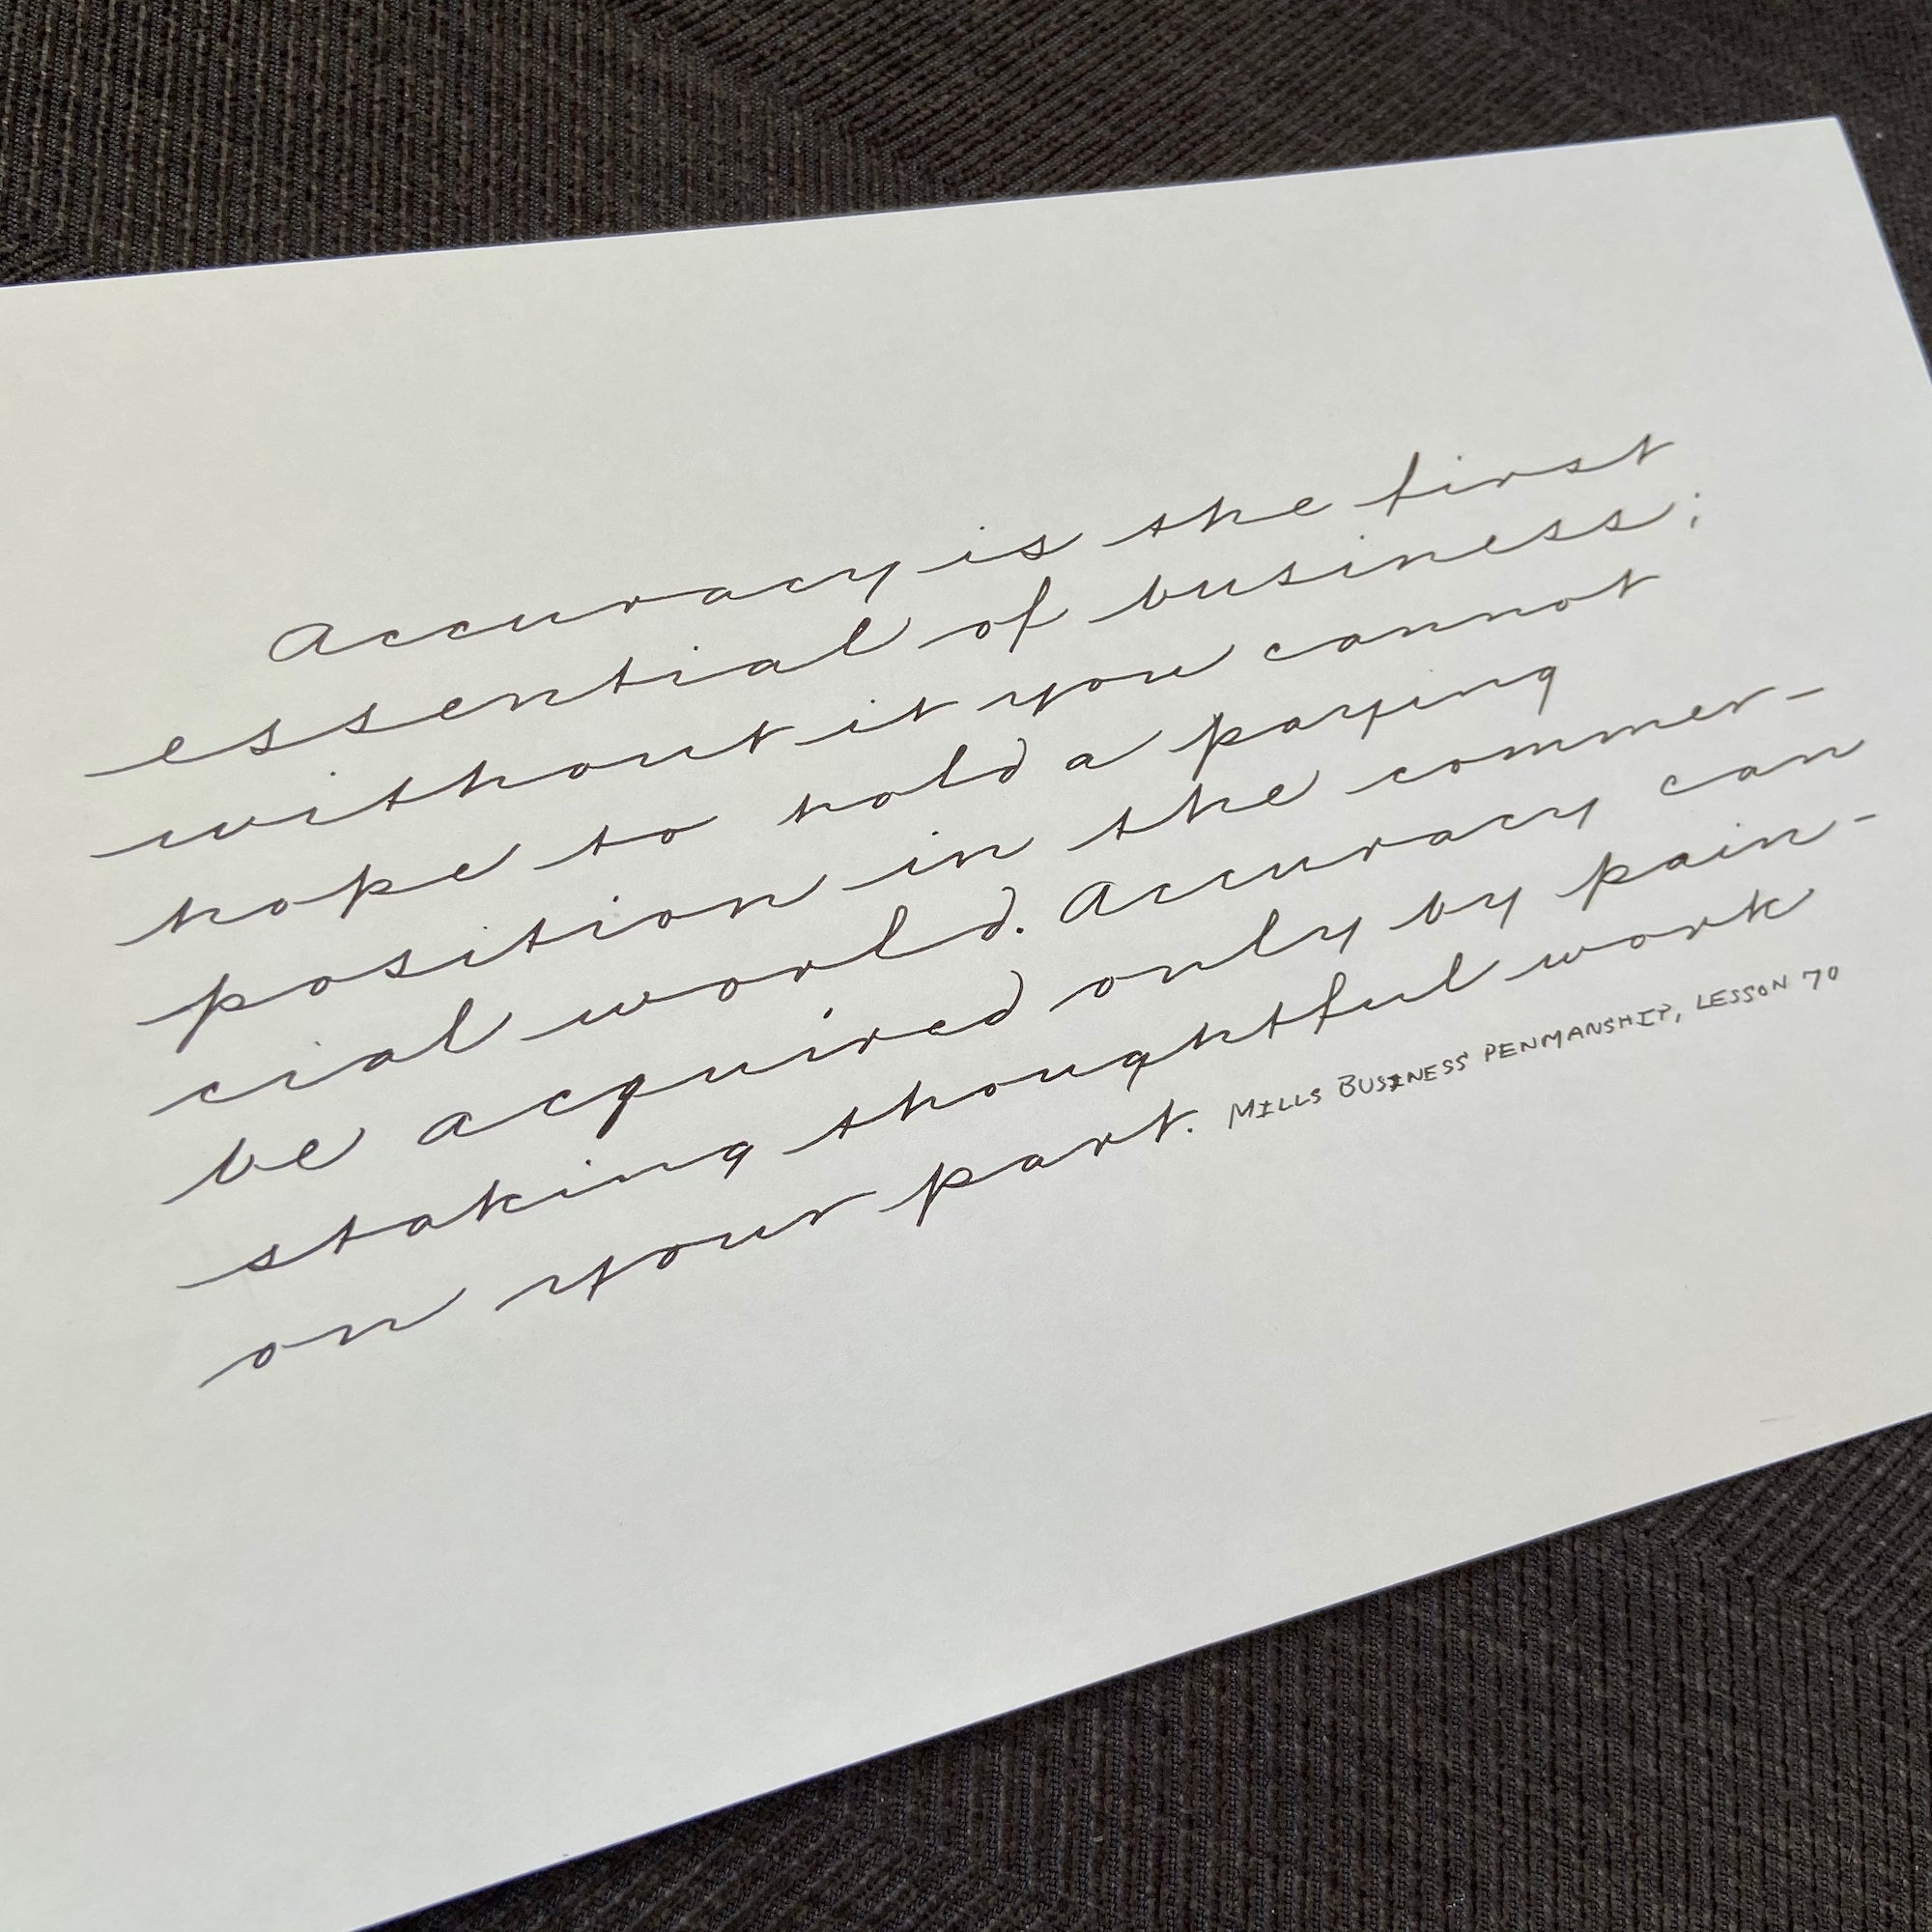 Accuracy is the first
essential of business;
without it you cannot
hope to hold a paying
position in the commer-
cial world. Accuracy can
be acquired only by pain-
staking thoughtful work
on your part. MILLS BUSINESS PENMANSHIP, LESSON 70